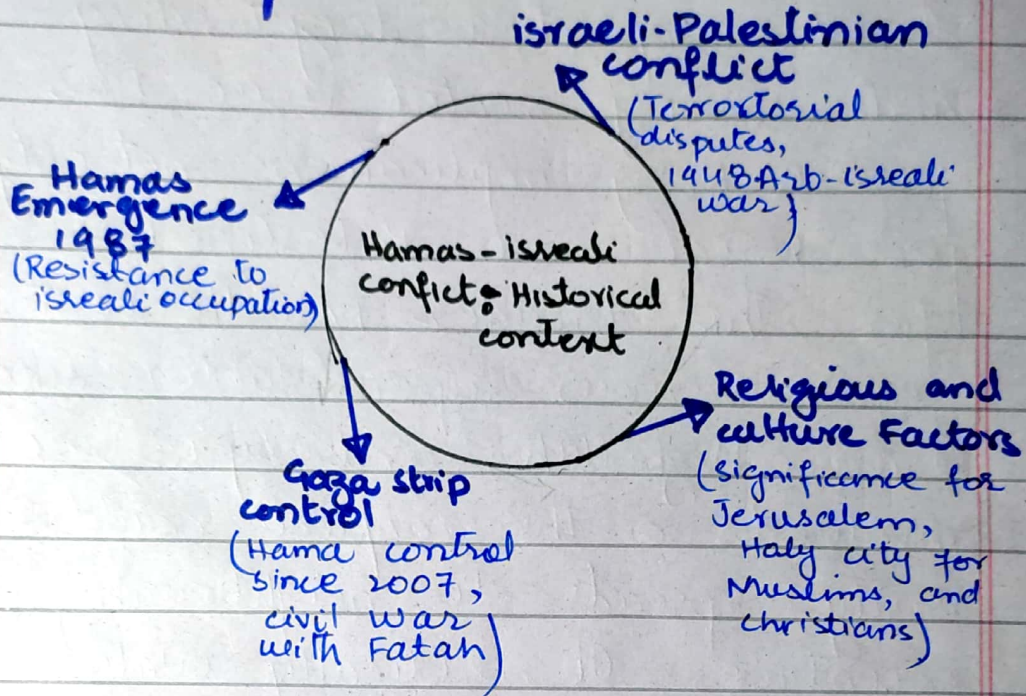 israeli-Palestinian
conflict
(Terrortorial
disputes,
1948 Arb-isreali
war)
Hamas
Emergence
1987
(Resistance to
isreali occupation)
Hamas-isreali
confict: Historical
context
Religious and
culture Factors
(significance for
Jerusalem,
Holy city for
Muslims, and
christians)
Gaza strip
control
(Hama control
since 2007,
civil war
with Fatah)